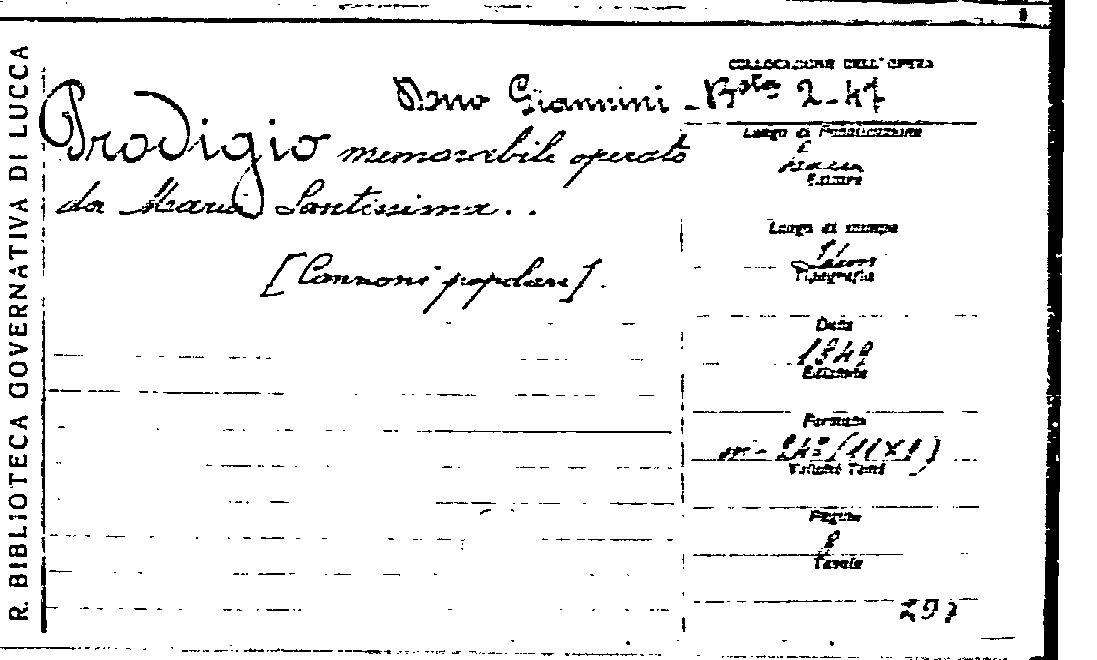 R. BIBLIOTECA GOVERNATIVA DI LUCCA
COLLOCAZIONE DELL'OPERA
Dono Giannini - B.ta 2-47
Prodigio memorabile operato
da Maria Santissima..
[Canzoni popolari].
Luogo di Pubblicazione
Lucca
Editore
Luogo di stampa
Tipografia
Data
1849
Edizione
Formato
in-24° (11X8)
Volumi Tomi
Pagine
8
Tavole